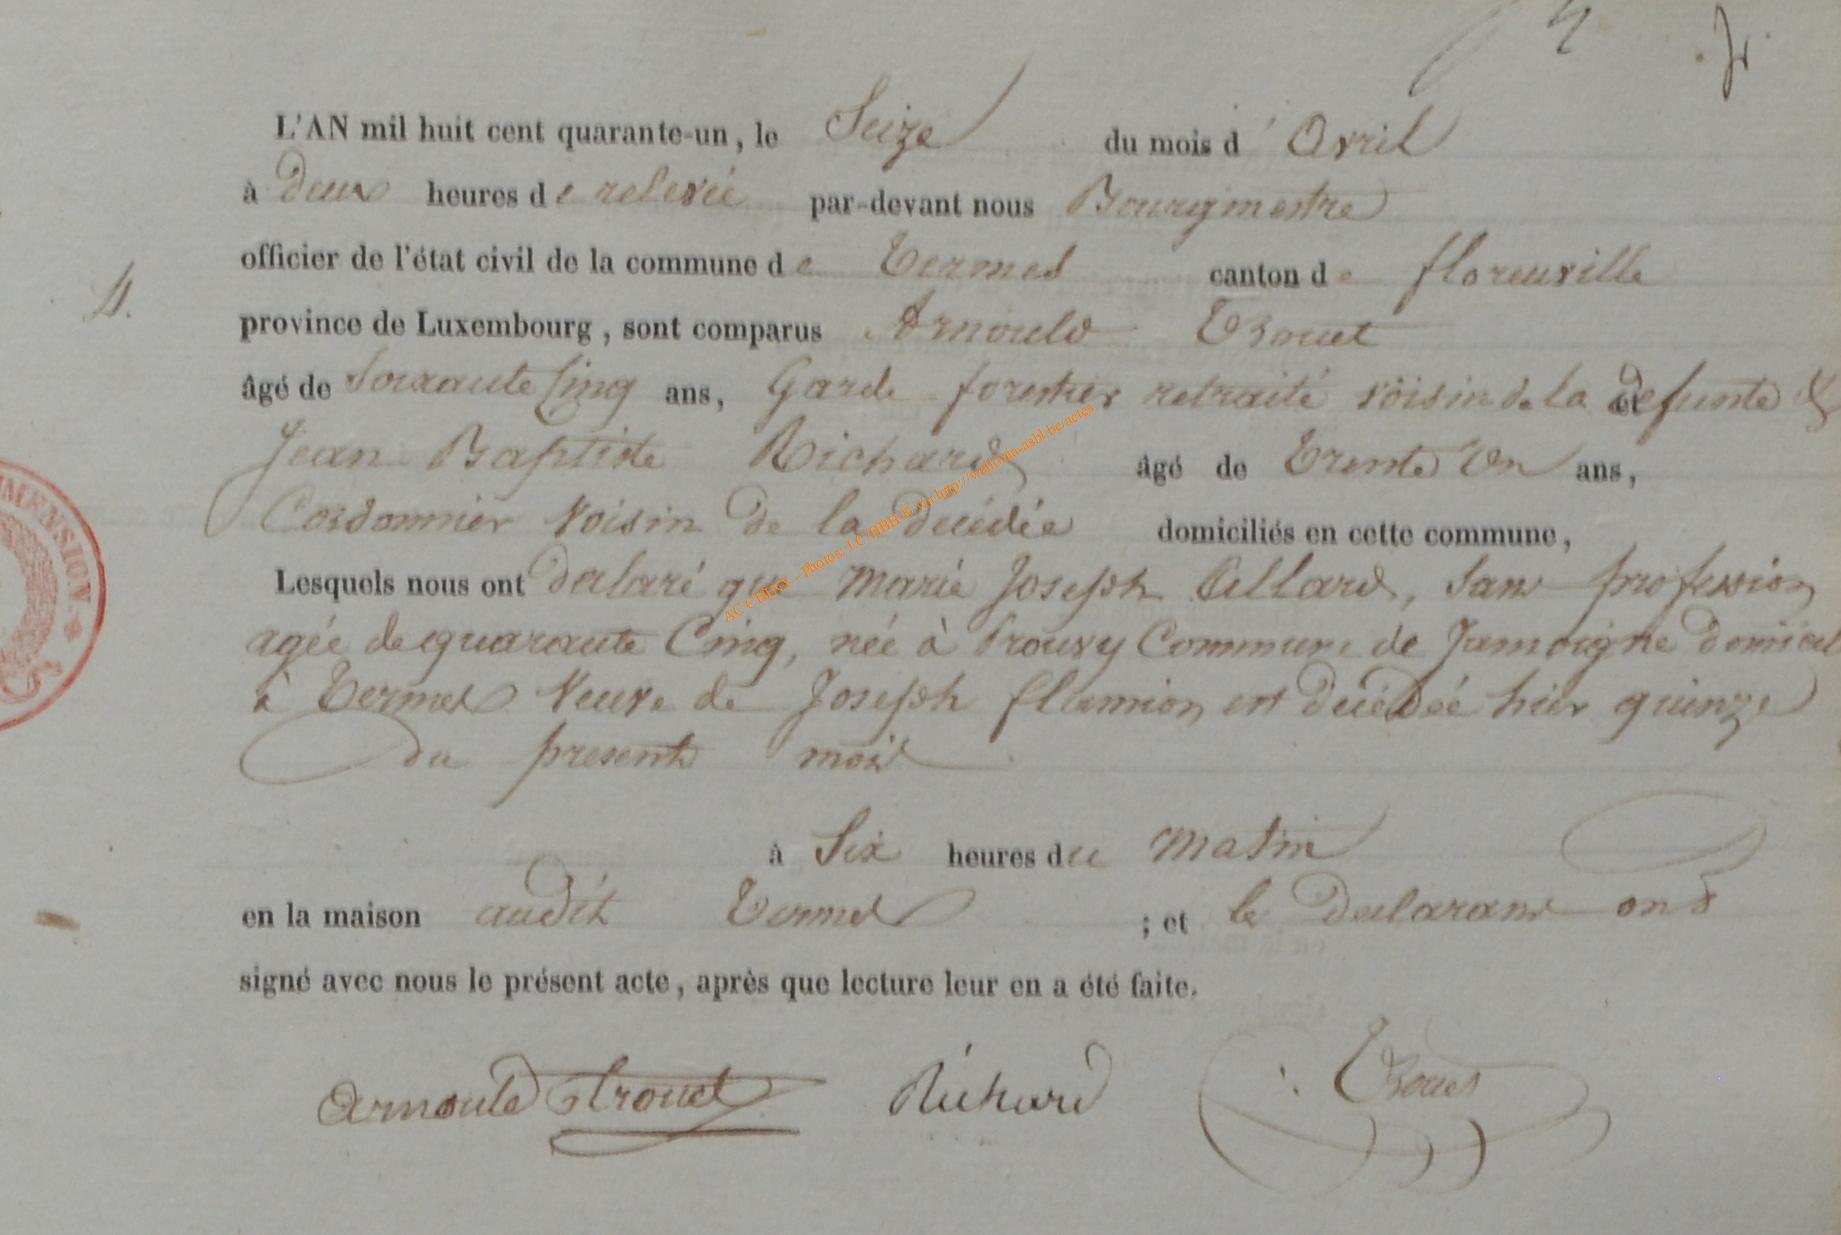 L'AN mil huit cent quarante-un, le Seize du mois d'Avril
à deux heures de relevée par-devant nous Bourgmestre
officier de l'état civil de la commune de Termes canton de florenville
4.
province de Luxembourg, sont comparus Arnould Trouet
âgé de Soixante Cinq ans, Garde forestier retraité voisin de la defunte &
Jean Baptiste Richard âgé de Trente Un ans,
Cordonnier voisin de la decédée domiciliés en cette commune,
Lesquels nous ont declaré que Marie Joseph Allard, Sans profession
agée de quarante Cinq, née à Prouvy Commune de Jamoigne domicil
à Termes Veuve de Joseph flamion est decédée hier quinze
du present mois
à Six heures du Matin
en la maison audit Termes ; et le declarans ont
signé avec nous le présent acte, après que lecture leur en a été faite.
arnould trouet Richard Trouet
MMENSION.
AC CHINY - Photos: J.C HBH & via http://wallonia-asbl.be/actes